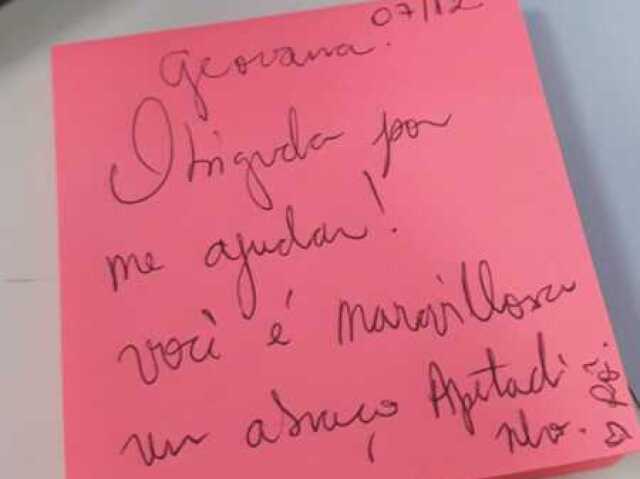 07/12
Geovana.
Obrigada por
me ajudar!
você é maravillosa
um abraço Apetadi
nho.